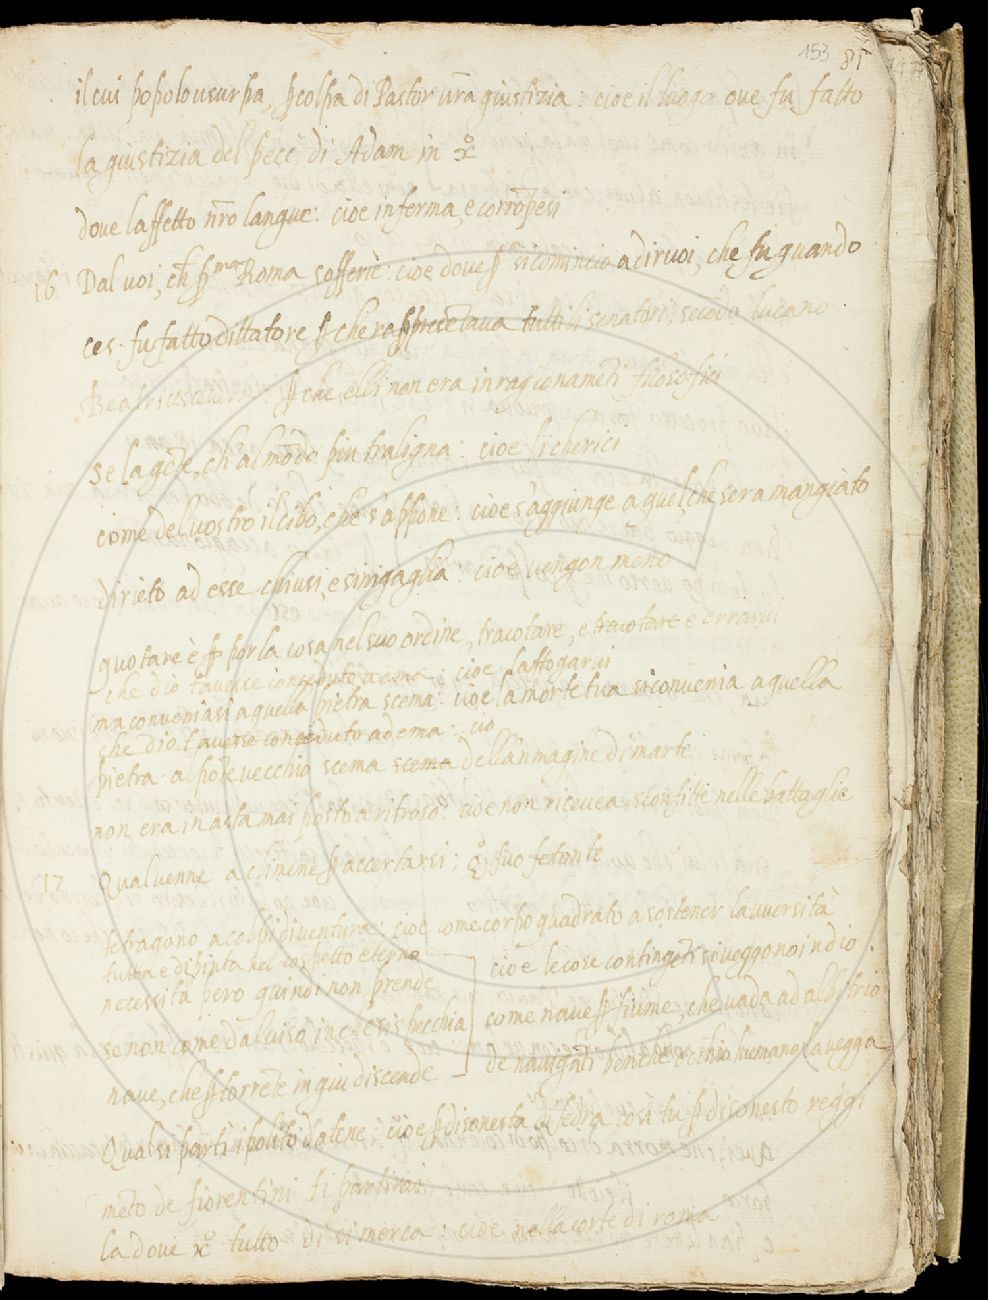 153 81
il cui popolo usurpa, p colpa di Pastor vr̄a giustizia : cioe il luogo ove fu fatto
la giustizia del pecc̄ di Adam in x̊
dove laffetto nr̄o langue : cioe inferma, e corrōpesi
16 Dal voi, ch̄ pᵐᵃ Roma sofferie : cioe dove si comincio a dir voi, che fu quando
ces. fu fatto dittatore p che rappresētava tutti li senatori, secōdo lucano
Beatrice : p che elli non era in ragionamēti filosofici
se la gēte, ch̄ al mōdo piu traligna : cioe li cherici
come del vostro il cibo, che s'appone : cioe s'aggiunge a quel che sera mangiato
dirieto ad esse chiusi, e sinigaglia : cioe vengon meno
quotare è p por la cosa nel suo ordine, tracotare, e tracotare è errarvi
che dio t'avesse conceduto a ema : cioe s'affogarvi
ma conveniasi a quella pietra scema : cioe la morte tua si convenia a quella
che dio t'avesse conceduto ad ema : cio
pietra al pōte vecchio scema scema dell'inmagine di marte
non era in asta mai posto a ritroso : cioe non riceuea sconfitte nelle battaglie
17 Qual venne a climene p accertarsi : q̊ fuo fetonte
tetragono a colpi di ventura : cioe come corpo quadrato a sostener l'avversità
tutta e dipinta nel cospetto eterno
necessità pero quindi non prende
se non come dal viso in che si specchia
nave, che p torrēte in giu discende
cioe le cose contingēti si veggono in dio
come nave p fiume, che vada ad albitrio
de naviganti benche ochio humano la vegga
Qual si partì ipolito d'atene : cioe p disonesta di fedra cosi tu p disonesto reggi
mēto de fiorentini ti partirai
la dove x̊ tutto di si merca : cioe nella corte di roma